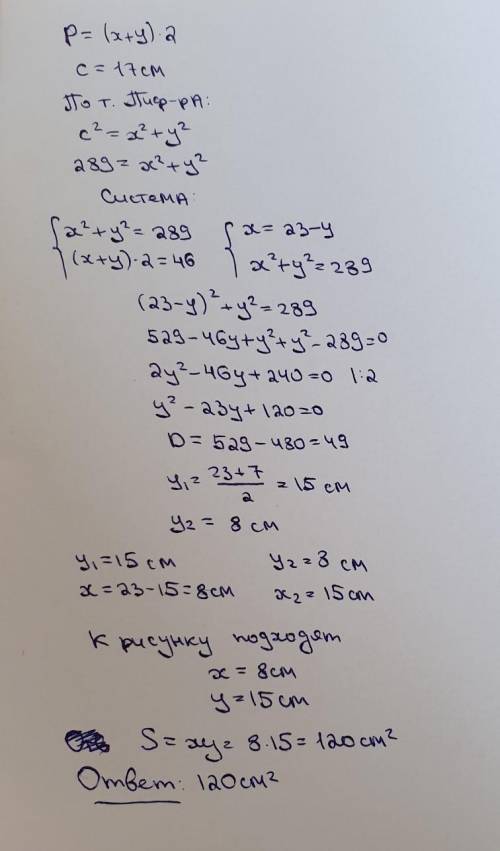 P = (x+y)·2
c = 17см
По т. Пиф-рА:
c² = x² + y²
289 = x² + y²
Система:
{ x² + y² = 289 { x = 23-y
(x+y)·2 = 46 x² + y² = 289
(23-y)² + y² = 289
529 - 46y + y² + y² - 289 = 0
2y² - 46y + 240 = 0 |:2
y² - 23y + 120 = 0
D = 529 - 480 = 49
y₁ = (23+7)/2 = 15 см
y₂ = 8 см
y₁ = 15 см y₂ = 8 см
x = 23-15 = 8см x₂ = 15см
К рисунку подходят
x = 8см
y = 15см
S = xy = 8·15 = 120см²
Ответ: 120см²